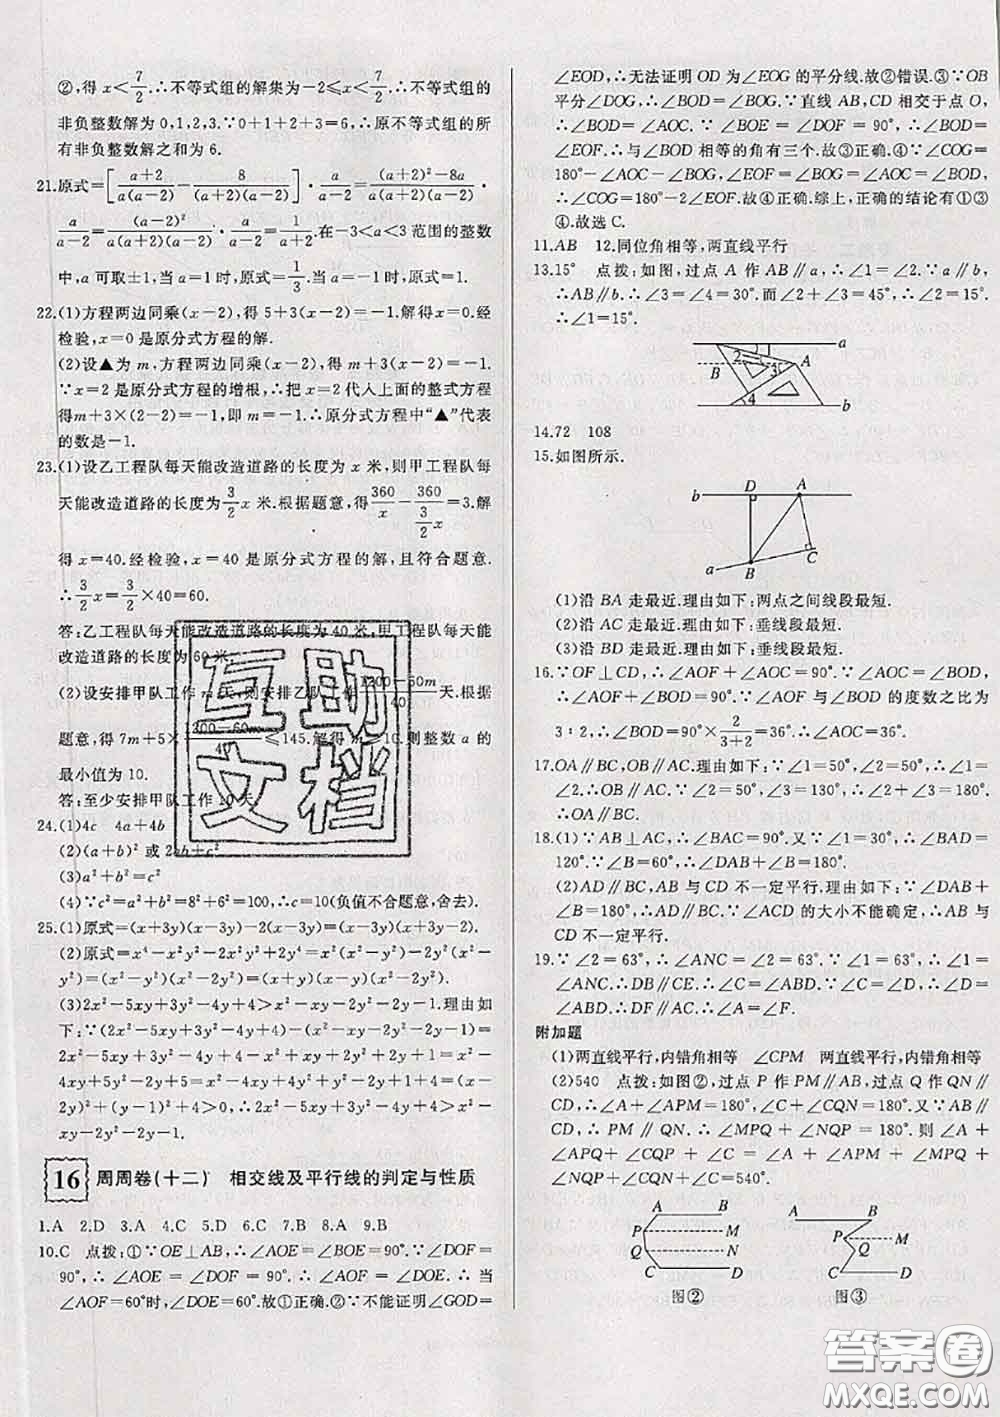 ②,得 x<7/2.∴不等式组的解集为-2≤x<7/2.∴不等式组的
非负整数解为 0,1,2,3.∵0+1+2+3=6,∴原不等式组的所
有非负整数解之和为 6.
21.原式=[(a+2)/(a(a-2))-8/((a+2)(a-2))]·a/(a-2)=((a+2)²-8a)/(a(a+2)(a-2))·
a/(a-2)=(a-2)²/(a(a+2)(a-2))·a/(a-2)=1/(a+2).在-3<a<3 范围的整数
中,a 可取±1,当 a=1 时,原式=1/3.当 a=-1 时,原式=1.
22.(1)方程两边同乘(x-2),得 5+3(x-2)=-1.解得x=0.经
检验,x=0是原分式方程的解.
(2)设▲为 m,方程两边同乘(x-2),得 m+3(x-2)=-1.
∵x=2是原分式方程的增根,∴把 x=2代入上面的整式方程
得m+3×(2-2)=-1,即 m=-1.∴原分式方程中“▲”代表
的数是-1.
23.(1)设乙工程队每天能改造道路的长度为 x 米,则甲工程队每
天能改造道路的长度为3/2 x 米.根据题意,得360/x-360/(3/2 x)=3.解
得 x=40.经检验,x=40 是原分式方程的解,且符合题意.
∴3/2 x=3/2×40=60.
答:乙工程队每天能改造道路的长度为 40 米,甲工程队每天能
改造道路的长度为 60 米.
(2)设安排甲队工作 m 天,则安排乙队工作(1200-60m)/40天.根据
题意,得 7m+5×(1200-60m)/40≤145.解得 m≥10.则整数 a 的
最小值为 10.
答:至少安排甲队工作 10 天.
24.(1)4c 4a+4b
(2)(a+b)² 或 2ab+c²
(3)a²+b²=c²
(4)∵c²=a²+b²=8²+6²=100,∴c=10(负值不合题意,舍去).
25.(1)原式=(x+3y)(x-3y)-2(x-3y)=(x-3y)(x+3y-2).
(2)原式=x⁴-x²y²-x²y²+y⁴=x²(x²-y²)-y²(x²-
y²)=(x²-y²)(x²-y²)=(x+y)(x-y)(x+y)(x-y).
(3)2x²-5xy+3y²-4y+4>x²-xy-2y²-1.理由如
下:∵(2x²-5xy+3y²-4y+4)-(x²-xy-2y²-1)=
2x²-5xy+3y²-4y+4-x²+xy+2y²+1=x²-
4xy+5y²-4y+5=x²-4xy+4y²+y²-4y+4+1=(x-
2y)²+(y-1)²+4>0,∴2x²-5xy+3y²-4y+4>x²-
xy-2y²-1.
16 周周卷(十二) 相交线及平行线的判定与性质
1.A 2.D 3.A 4.C 5.C 6.D 7.B 8.A 9.B
10.C 点拨:①∵OE⊥AB,∴∠AOE=∠BOE=90°.∵∠DOF=
90°,∴∠AOE=∠DOF.∴∠AOF=∠DOE.∴当
∠AOF=60°时,∠DOE=60°.故①正确.②∵不能证明∠GOD=
∠EOD,∴无法证明 OD 为∠EOG的平分线.故②错误.③∵OB
平分∠DOG,∴∠BOD=∠BOG.∵直线 AB,CD 相交于点 O,
∴∠BOD=∠AOC.∵∠BOE=∠DOF=90°,∴∠BOD=
∠EOF.∴与∠BOD 相等的角有三个.故③正确.④∵∠COG=
180°-∠AOC-∠BOG,∠AOC=∠BOG=∠EOF,
∴∠COG=180°-2∠EOF.故④正确.综上,正确的结论有①③
④.故选 C.
11.AB 12.同位角相等,两直线平行
13.15° 点拨:如图,过点 A 作AB∥a,∴∠1=∠2.∵a∥b,
∴AB∥b.∴∠3=∠4=30°.而∠2+∠3=45°,∴∠2=15°.
∴∠1=15°.
a
1
2
B
3
A
4
b
14.72 108
15.如图所示.
b
D
A
C
a
B
(1)沿 BA 走最近.理由如下:两点之间线段最短.
(2)沿 AC 走最近.理由如下:垂线段最短.
(3)沿 BD 走最近.理由如下:垂线段最短.
16.∵OF⊥CD,∴∠AOF+∠AOC=90°.∵∠AOC=∠BOD,
∴∠AOF+∠BOD=90°.∵∠AOF 与∠BOD 的度数之比为
3∶2,∴∠BOD=90°×2/(3+2)=36°.∴∠AOC=36°.
17.OA∥BC,OB∥AC.理由如下:∵∠1=50°,∠2=50°,∴∠1=
∠2.∴OB∥AC.∵∠2=50°,∠3=130°,∴∠2+∠3=180°.
∴OA∥BC.
18.(1)∵AB⊥AC,∴∠BAC=90°.又∵∠1=30°,∴∠BAD=
120°.∵∠B=60°,∴∠DAB+∠B=180°.
(2)AD∥BC,AB与CD不一定平行.理由如下:∵∠DAB+
∠B=180°,∴AD∥BC.∵∠ACD 的大小不能确定,∴AB 与
CD 不一定平行.
19.∵∠2=63°,∴∠ANC=∠2=63°.∵∠1=63°,∴∠1=
∠ANC.∴DB∥CE.∴∠C=∠ABD.∵∠C=∠D,∴∠D=
∠ABD.∴DF∥AC.∴∠A=∠F.
附加题
(1)两直线平行,内错角相等 ∠CPM 两直线平行,内错角相等
(2)540 点拨:如图②,过点 P 作 PM∥AB,过点 Q 作 QN∥
CD,∴∠A+∠APM=180°,∠C+∠CQN=180°.又∵AB∥
CD,∴PM∥QN.∴∠MPQ+∠NQP=180°.则∠A+
∠APQ+∠CQP+∠C=∠A+∠APM+∠MPQ+
∠NQP+∠CQN+∠C=540°.
A B
P M
Q N
C D
图②
A B
P M
Q
C D
图③
互助
文档
答案圈
MXQE.COM